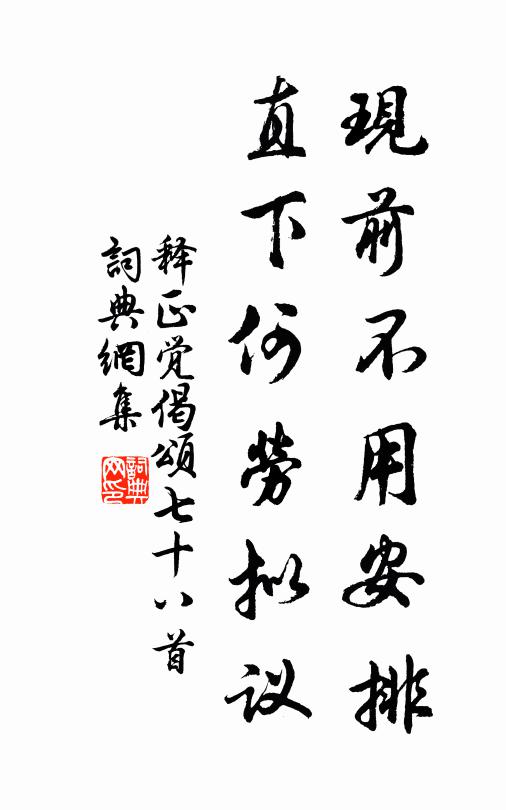 現前不用安排
直下何勞拟议
释正觉偈頌七十八首
詞典網集
詞典網印